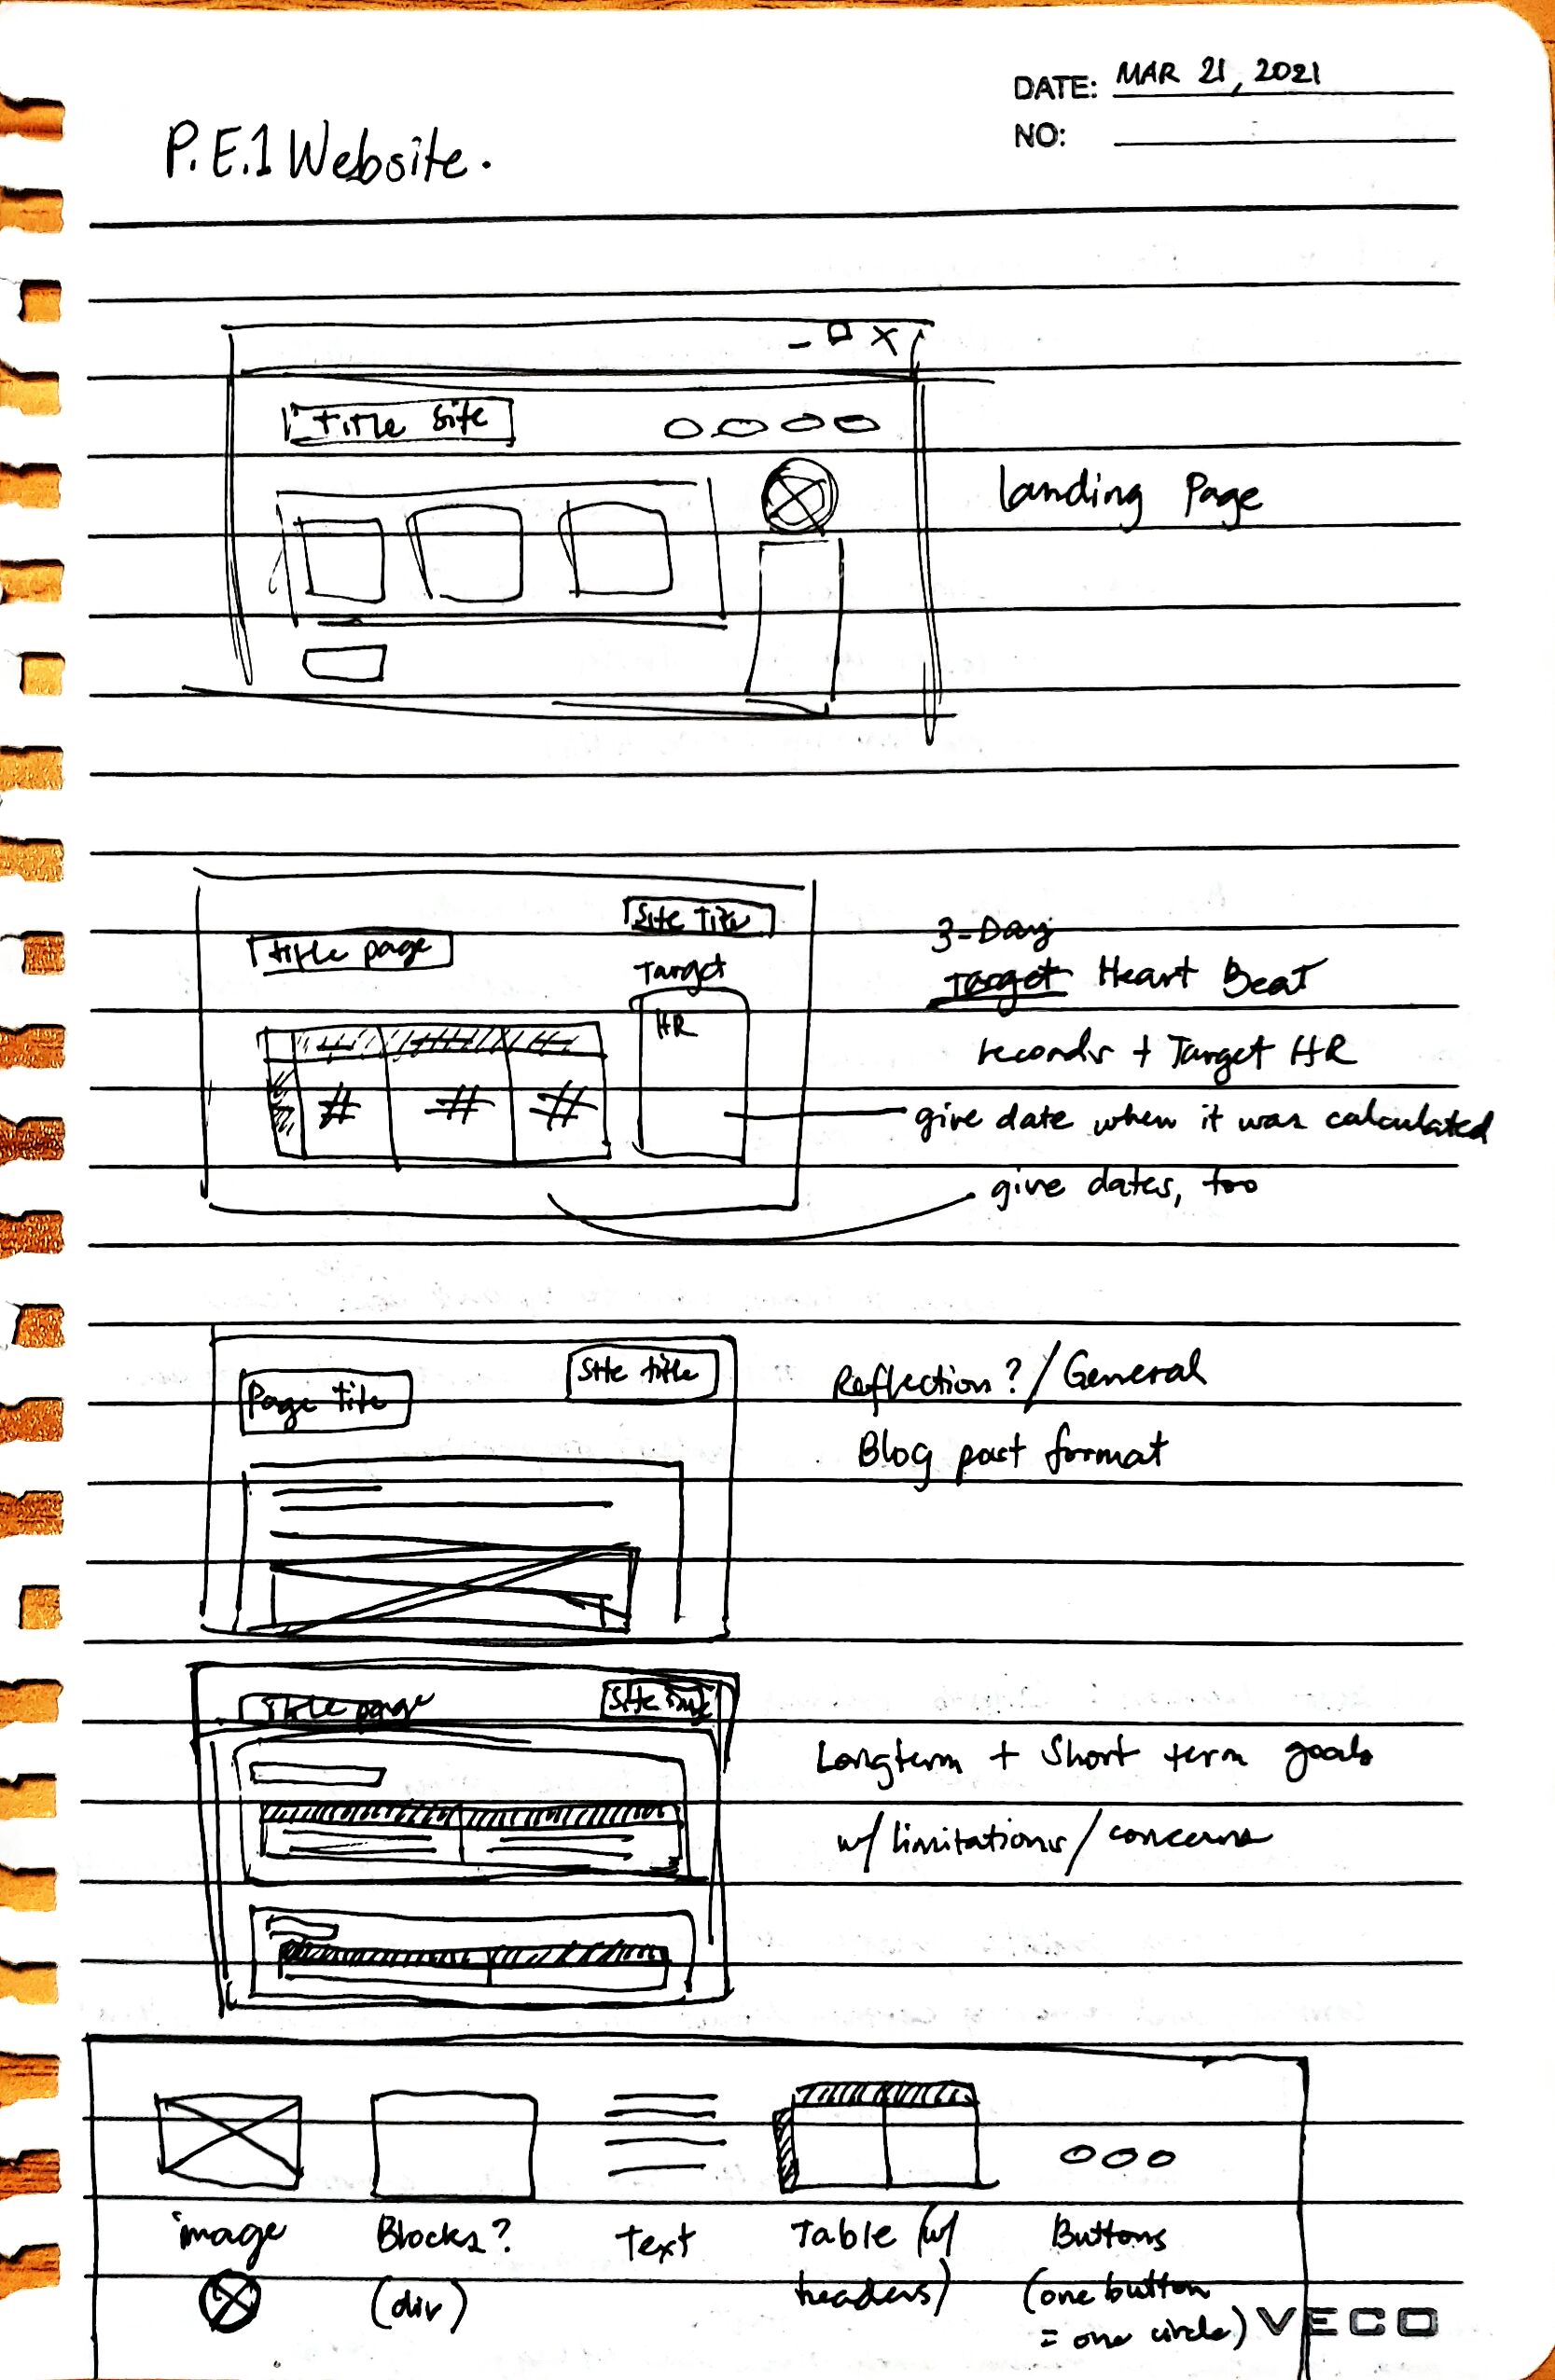 DATE: MAR 21, 2021
NO:
P.E.1 Website.
Title Site
Landing Page
Title page
Site Title
Target
HR
3-Day
Target Heart Beat
records + Target HR
give date when it was calculated
give dates, too
Page title
Site title
Reflection? / General
Blog post format
Title page
Site title
Longterm + Short term goals
w/ limitations / concerns
image
Blocks?
(div)
Text
Table (w/
headers)
Buttons
(one button
= one circle)
VECO